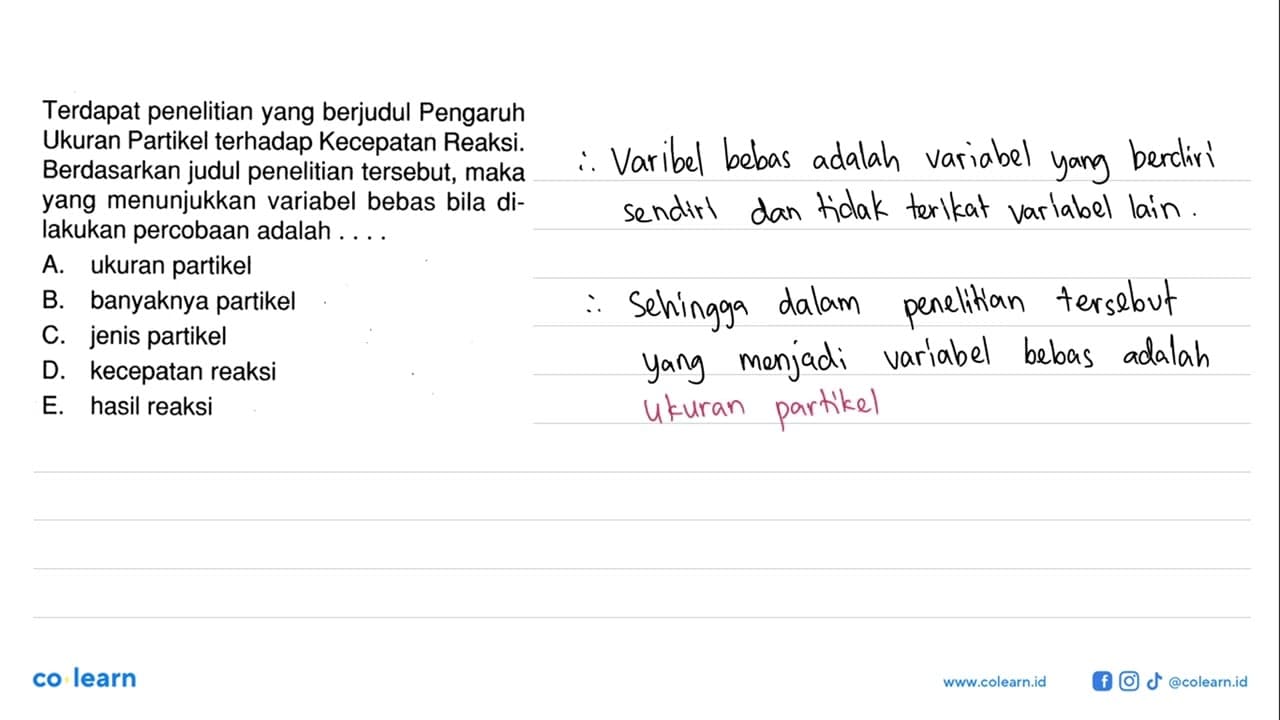 Terdapat penelitian yang berjudul Pengaruh
Ukuran Partikel terhadap Kecepatan Reaksi.
Berdasarkan judul penelitian tersebut, maka
yang menunjukkan variabel bebas bila di-
lakukan percobaan adalah . . . .
A. ukuran partikel
B. banyaknya partikel
C. jenis partikel
D. kecepatan reaksi
E. hasil reaksi
∴ Varibel bebas adalah variabel yang berdiri
sendiri dan tidak terikat variabel lain.
∴ Sehingga dalam penelitian tersebut
yang menjadi variabel bebas adalah
ukuran partikel
co learn
www.colearn.id
@colearn.id